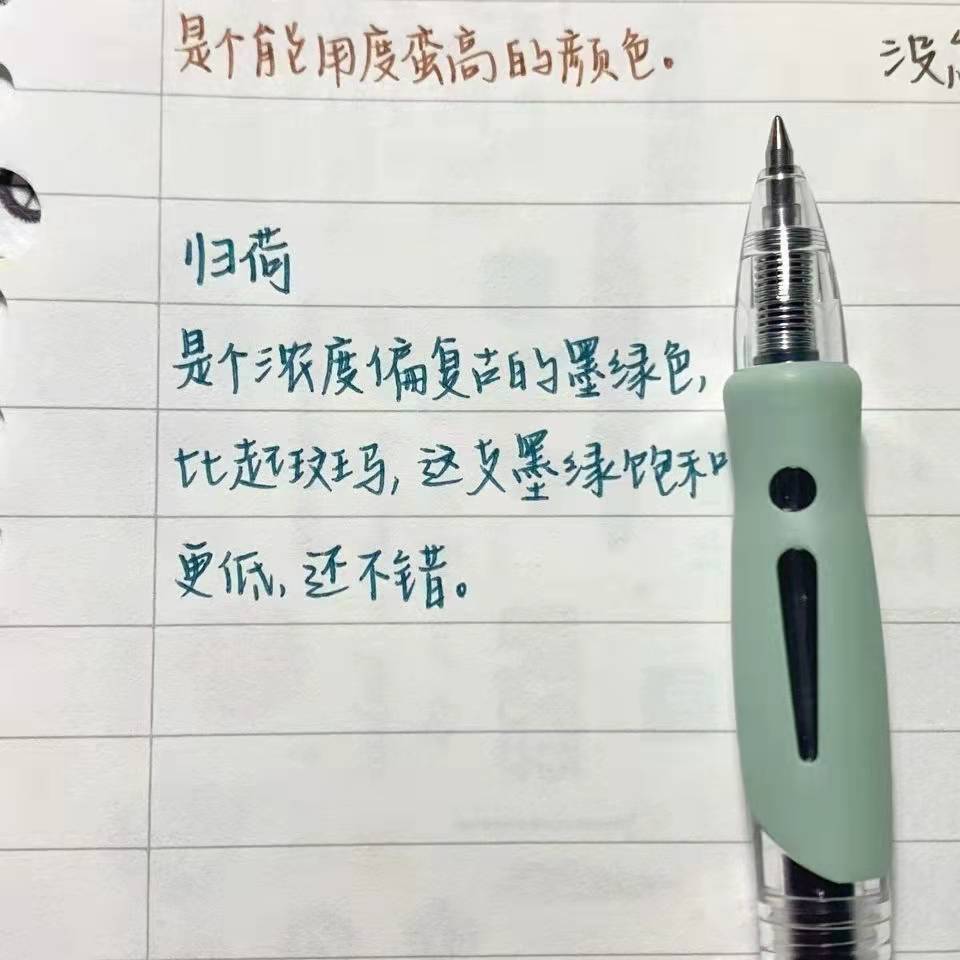 是个能用度蛮高的颜色。
没
归荷
是个浓度偏复古的墨绿色,
比起斑马,这支墨绿饱和
更低,还不错。